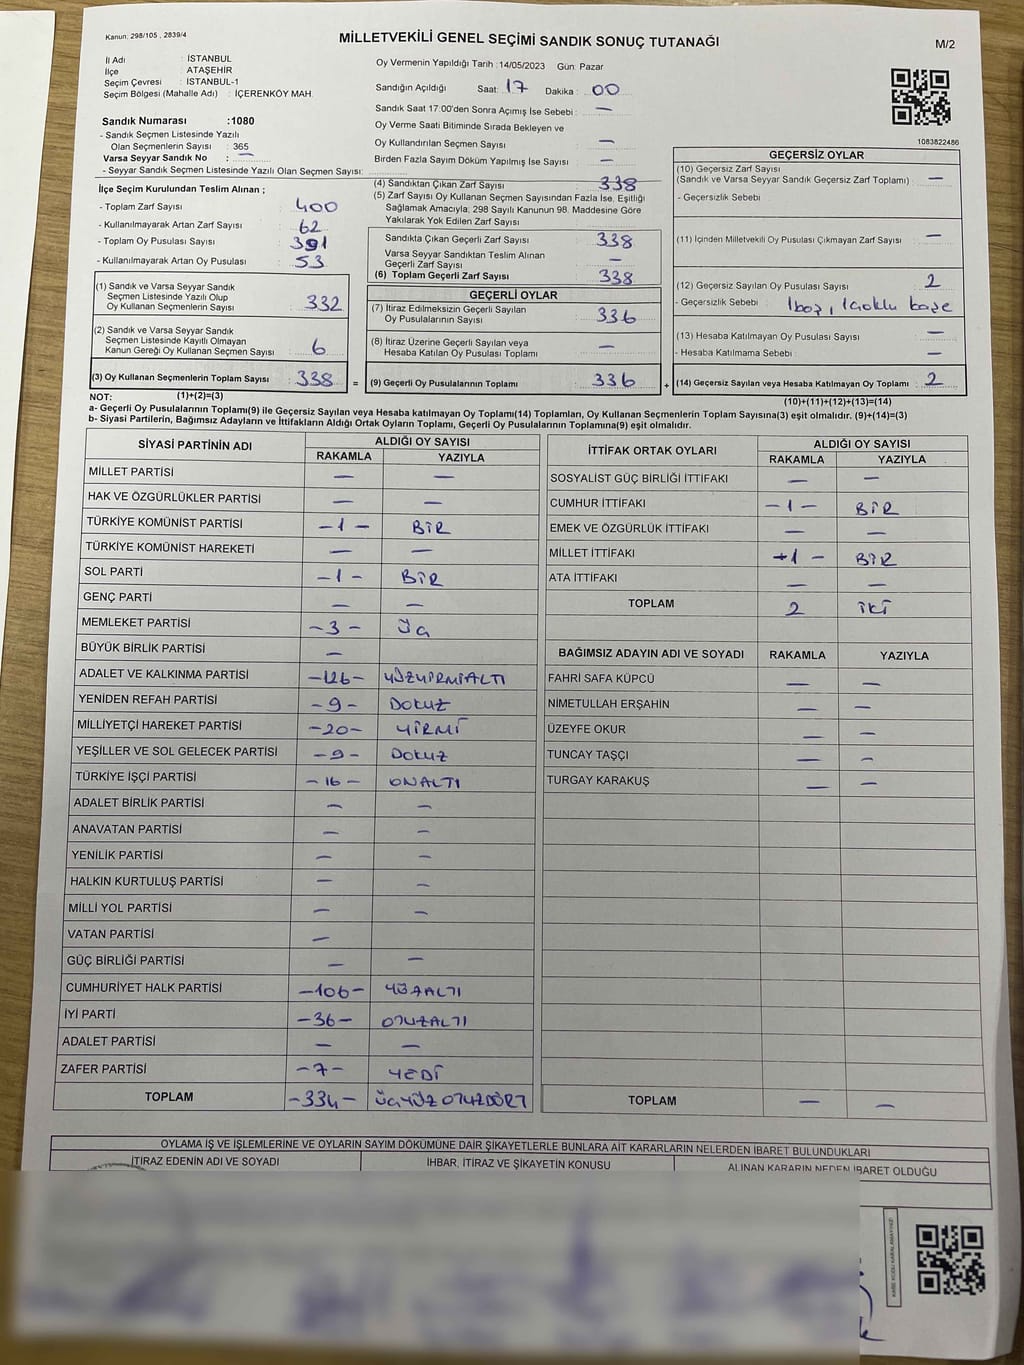 Kanun: 298/105 , 2839/4
MİLLETVEKİLİ GENEL SEÇİMİ SANDIK SONUÇ TUTANAĞI
M/2
İl Adı : İSTANBUL
İlçe : ATAŞEHİR
Seçim Çevresi : İSTANBUL-1
Seçim Bölgesi (Mahalle Adı) : İÇERENKÖY MAH.
Sandık Numarası :1080
- Sandık Seçmen Listesinde Yazılı
Olan Seçmenlerin Sayısı : 365
Varsa Seyyar Sandık No : —
- Seyyar Sandık Seçmen Listesinde Yazılı Olan Seçmen Sayısı:
Oy Vermenin Yapıldığı Tarih :14/05/2023 Gün: Pazar
Sandığın Açıldığı Saat: 17 Dakika : 00
Sandık Saat 17:00'den Sonra Açımış İse Sebebi : —
Oy Verme Saati Bitiminde Sırada Bekleyen ve
Oy Kullandırılan Seçmen Sayısı : —
Birden Fazla Sayım Döküm Yapılmış İse Sayısı : —
1083822486
İlçe Seçim Kurulundan Teslim Alınan ;
- Toplam Zarf Sayısı : 400
- Kullanılmayarak Artan Zarf Sayısı : 62
- Toplam Oy Pusulası Sayısı : 391
- Kullanılmayarak Artan Oy Pusulası : 53
(1) Sandık ve Varsa Seyyar Sandık
Seçmen Listesinde Yazılı Olup
Oy Kullanan Seçmenlerin Sayısı : 332
(2) Sandık ve Varsa Seyyar Sandık
Seçmen Listesinde Kayıtlı Olmayan
Kanun Gereği Oy Kullanan Seçmen Sayısı : 6
(3) Oy Kullanan Seçmenlerin Toplam Sayısı : 338
(4) Sandıktan Çıkan Zarf Sayısı : 338
(5) Zarf Sayısı Oy Kullanan Seçmen Sayısından Fazla İse, Eşitliği
Sağlamak Amacıyla, 298 Sayılı Kanunun 98. Maddesine Göre
Yakılarak Yok Edilen Zarf Sayısı :
Sandıkta Çıkan Geçerli Zarf Sayısı : 338
Varsa Seyyar Sandıktan Teslim Alınan
Geçerli Zarf Sayısı : —
(6) Toplam Geçerli Zarf Sayısı : 338
GEÇERLİ OYLAR
(7) İtiraz Edilmeksizin Geçerli Sayılan
Oy Pusulalarının Sayısı : 336
(8) İtiraz Üzerine Geçerli Sayılan veya
Hesaba Katılan Oy Pusulası Toplamı : —
= (9) Geçerli Oy Pusulalarının Toplamı : 336 +
GEÇERSİZ OYLAR
(10) Geçersiz Zarf Sayısı
(Sandık ve Varsa Seyyar Sandık Geçersiz Zarf Toplamı) : —
- Geçersizlik Sebebi :
(11) İçinden Milletvekili Oy Pusulası Çıkmayan Zarf Sayısı : —
(12) Geçersiz Sayılan Oy Pusulası Sayısı : 2
- Geçersizlik Sebebi : 1 boş, 1 çoklu kaşe
(13) Hesaba Katılmayan Oy Pusulası Sayısı : —
- Hesaba Katılmama Sebebi : —
(14) Geçersiz Sayılan veya Hesaba Katılmayan Oy Toplamı : 2
NOT: (1)+(2)=(3)
(10)+(11)+(12)+(13)=(14)
a- Geçerli Oy Pusulalarının Toplamı(9) ile Geçersiz Sayılan veya Hesaba katılmayan Oy Toplamı(14) Toplamları, Oy Kullanan Seçmenlerin Toplam Sayısına(3) eşit olmalıdır. (9)+(14)=(3)
b- Siyasi Partilerin, Bağımsız Adayların ve İttifakların Aldığı Ortak Oyların Toplamı, Geçerli Oy Pusulalarının Toplamına(9) eşit olmalıdır.
SİYASİ PARTİNİN ADI ALDIĞI OY SAYISI
RAKAMLA YAZIYLA
MİLLET PARTİSİ — —
HAK VE ÖZGÜRLÜKLER PARTİSİ — —
TÜRKİYE KOMÜNİST PARTİSİ -1- BİR
TÜRKİYE KOMÜNİST HAREKETİ — —
SOL PARTİ -1- BİR
GENÇ PARTİ — —
MEMLEKET PARTİSİ -3- Üç
BÜYÜK BİRLİK PARTİSİ —
ADALET VE KALKINMA PARTİSİ -126- YÜZYİRMİALTI
YENİDEN REFAH PARTİSİ -9- DOKUZ
MİLLİYETÇİ HAREKET PARTİSİ -20- YİRMİ
YEŞİLLER VE SOL GELECEK PARTİSİ -9- DOKUZ
TÜRKİYE İŞÇİ PARTİSİ -16- ONALTI
ADALET BİRLİK PARTİSİ — —
ANAVATAN PARTİSİ — —
YENİLİK PARTİSİ — —
HALKIN KURTULUŞ PARTİSİ — —
MİLLİ YOL PARTİSİ — —
VATAN PARTİSİ —
GÜÇ BİRLİĞİ PARTİSİ — —
CUMHURİYET HALK PARTİSİ -106- YÜZALTI
İYİ PARTİ -36- OTUZALTI
ADALET PARTİSİ — —
ZAFER PARTİSİ -7- YEDİ
TOPLAM -334- ÜÇYÜZ OTUZDÖRT
İTTİFAK ORTAK OYLARI ALDIĞI OY SAYISI
RAKAMLA YAZIYLA
SOSYALİST GÜÇ BİRLİĞİ İTTİFAKI — —
CUMHUR İTTİFAKI -1- BİR
EMEK VE ÖZGÜRLÜK İTTİFAKI — —
MİLLET İTTİFAKI -1- BİR
ATA İTTİFAKI — —
TOPLAM 2 İKİ
BAĞIMSIZ ADAYIN ADI VE SOYADI RAKAMLA YAZIYLA
FAHRİ SAFA KÜPCÜ — —
NİMETULLAH ERŞAHİN — —
ÜZEYFE OKUR — —
TUNCAY TAŞÇI — —
TURGAY KARAKUŞ — —
TOPLAM — —
OYLAMA İŞ VE İŞLEMLERİNE VE OYLARIN SAYIM DÖKÜMÜNE DAİR ŞİKAYETLERLE BUNLARA AİT KARARLARIN NELERDEN İBARET BULUNDUKLARI
İTİRAZ EDENİN ADI VE SOYADI İHBAR, İTİRAZ VE ŞİKAYETİN KONUSU ALINAN KARARIN NEDEN İBARET OLDUĞU
KARE KODU KARALAMAYINIZ!